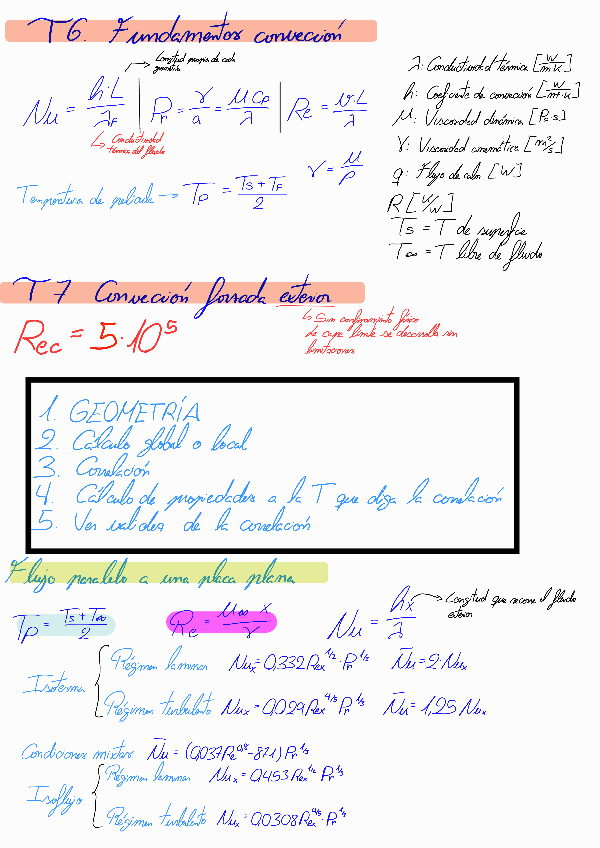 T6. Fundamentos convección
Longitud propia de cada geometría
Nu = h·L/λF | Pr = γ/a = μ·Cp/λ | Re = v·L/λ
Conductividad térmica del fluido
γ = μ/ρ
Temperatura de película → Tp = (Ts + TF)/2
λ: Conductividad térmica [W/m·K]
h: Coeficiente de convección [W/m²·K]
μ: Viscosidad dinámica [Pa·s]
γ: Viscosidad cinemática [m²/s]
q: Flujo de calor [W]
R [K/W]
Ts = T de superficie
T∞ = T libre de fluido
T7 Convección forzada exterior
Sin confinamiento físico
La capa límite se desarrolla sin limitaciones
Rec = 5·10⁵
1. GEOMETRÍA
2. Cálculo global o local
3. Correlación
4. Cálculo de propiedades a la T que diga la correlación
5. Ver validez de la correlación
Flujo paralelo a una placa plana
Tp = (Ts + T∞)/2
Re = μ∞ x/γ
Nu = hx/λ → Longitud que recorre el fluido exterior
Isoterma
Régimen laminar Nux = 0,332 Rex^1/2 · Pr^1/3 N̄u = 2·Nux
Régimen turbulento Nux = 0,029 Rex^4/5 Pr^1/3 N̄u = 1,25 Nux
Condiciones mixtas N̄u = (0,037 Re^0,8 - 871) Pr^1/3
Isoflujo
Régimen laminar Nux = 0,453 Rex^1/2 Pr^1/3
Régimen turbulento Nux = 0,0308 Rex^4/5 · Pr^1/3